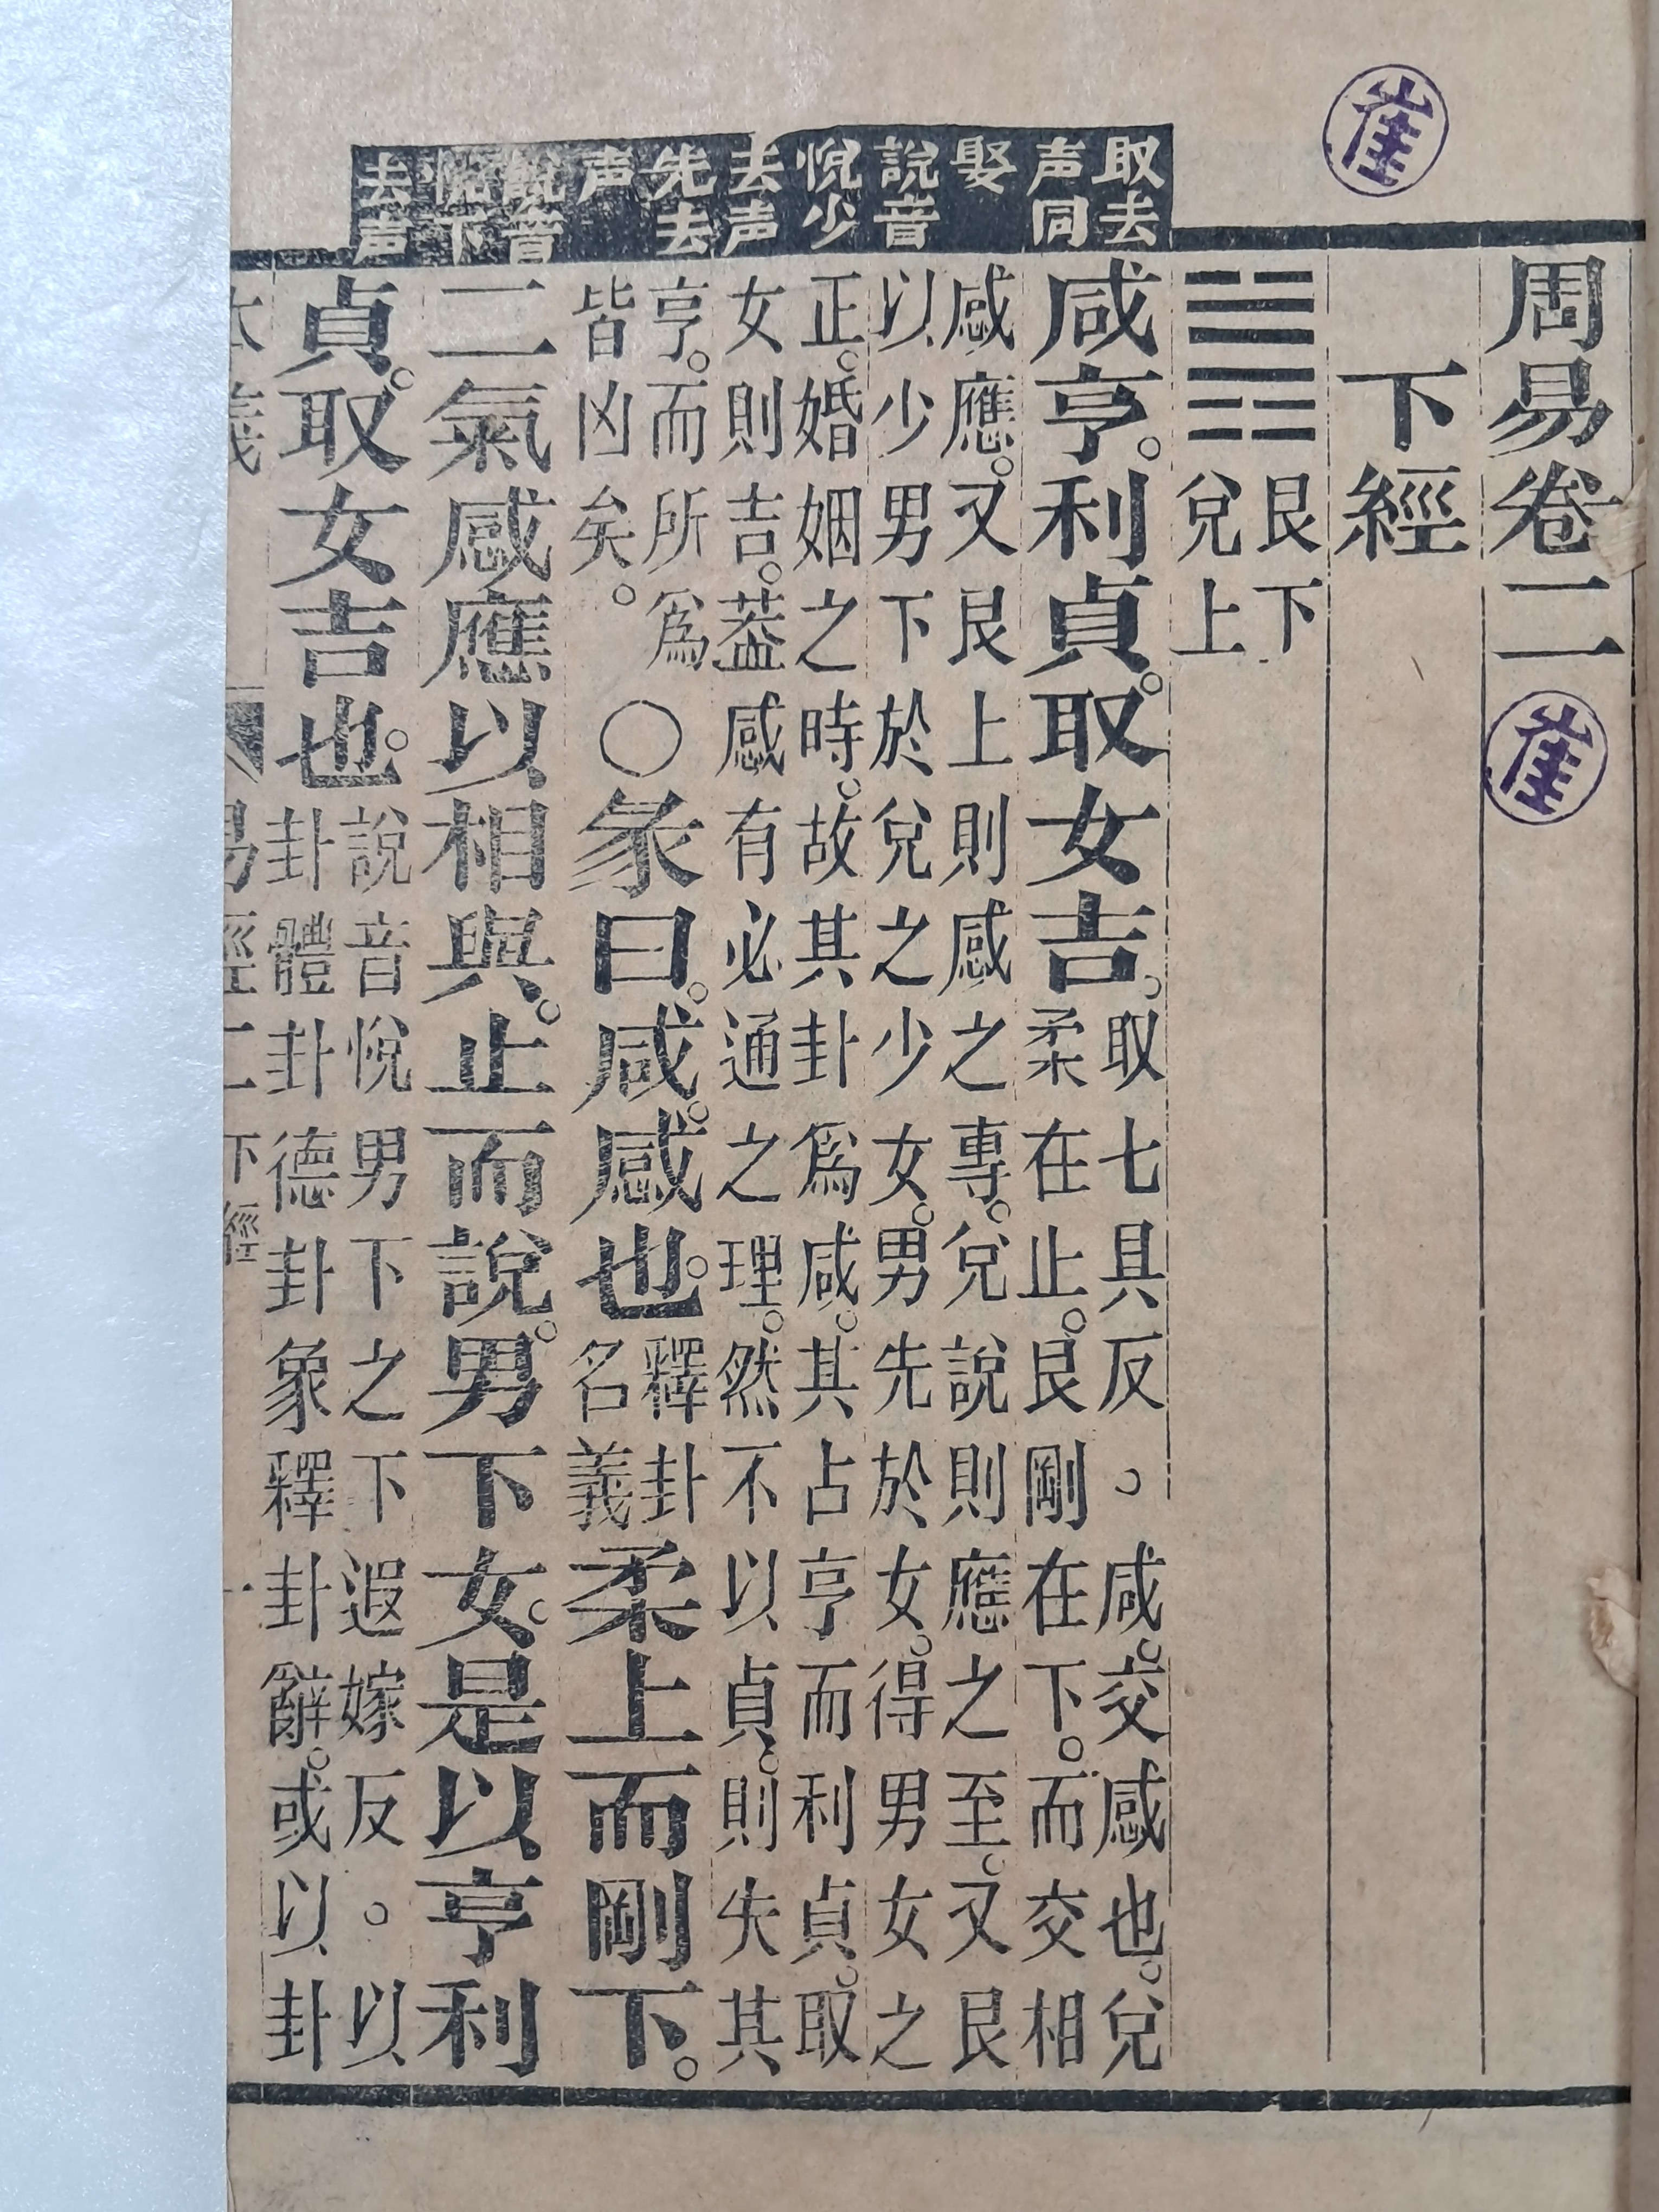 崔
取去
声同
娶
說音
悅少
去声
先去
声
說音
悅下
去声
周易卷二
崔
下經
艮下
兌上
咸亨。利貞。取女吉。
取七具反。咸。交感也。兌
柔在止。艮剛在下。而交相
感應。又艮上則感之專。兌說則應之至。又艮
以少男下於兌之少女。男先於女。得男女之
正。婚姻之時。故其卦爲咸。其占亨而利貞。取
女則吉。葢感有必通之理。然不以貞。則失其
亨。而所爲
皆凶矣。
○彖曰。咸。感也。
釋卦
名義
柔上而剛下。
二氣感應以相與。止而說。男下女。是以亨利
貞。取女吉也。
說音悅男下之下遐嫁反。以
卦體卦德卦象釋卦辭。或以卦